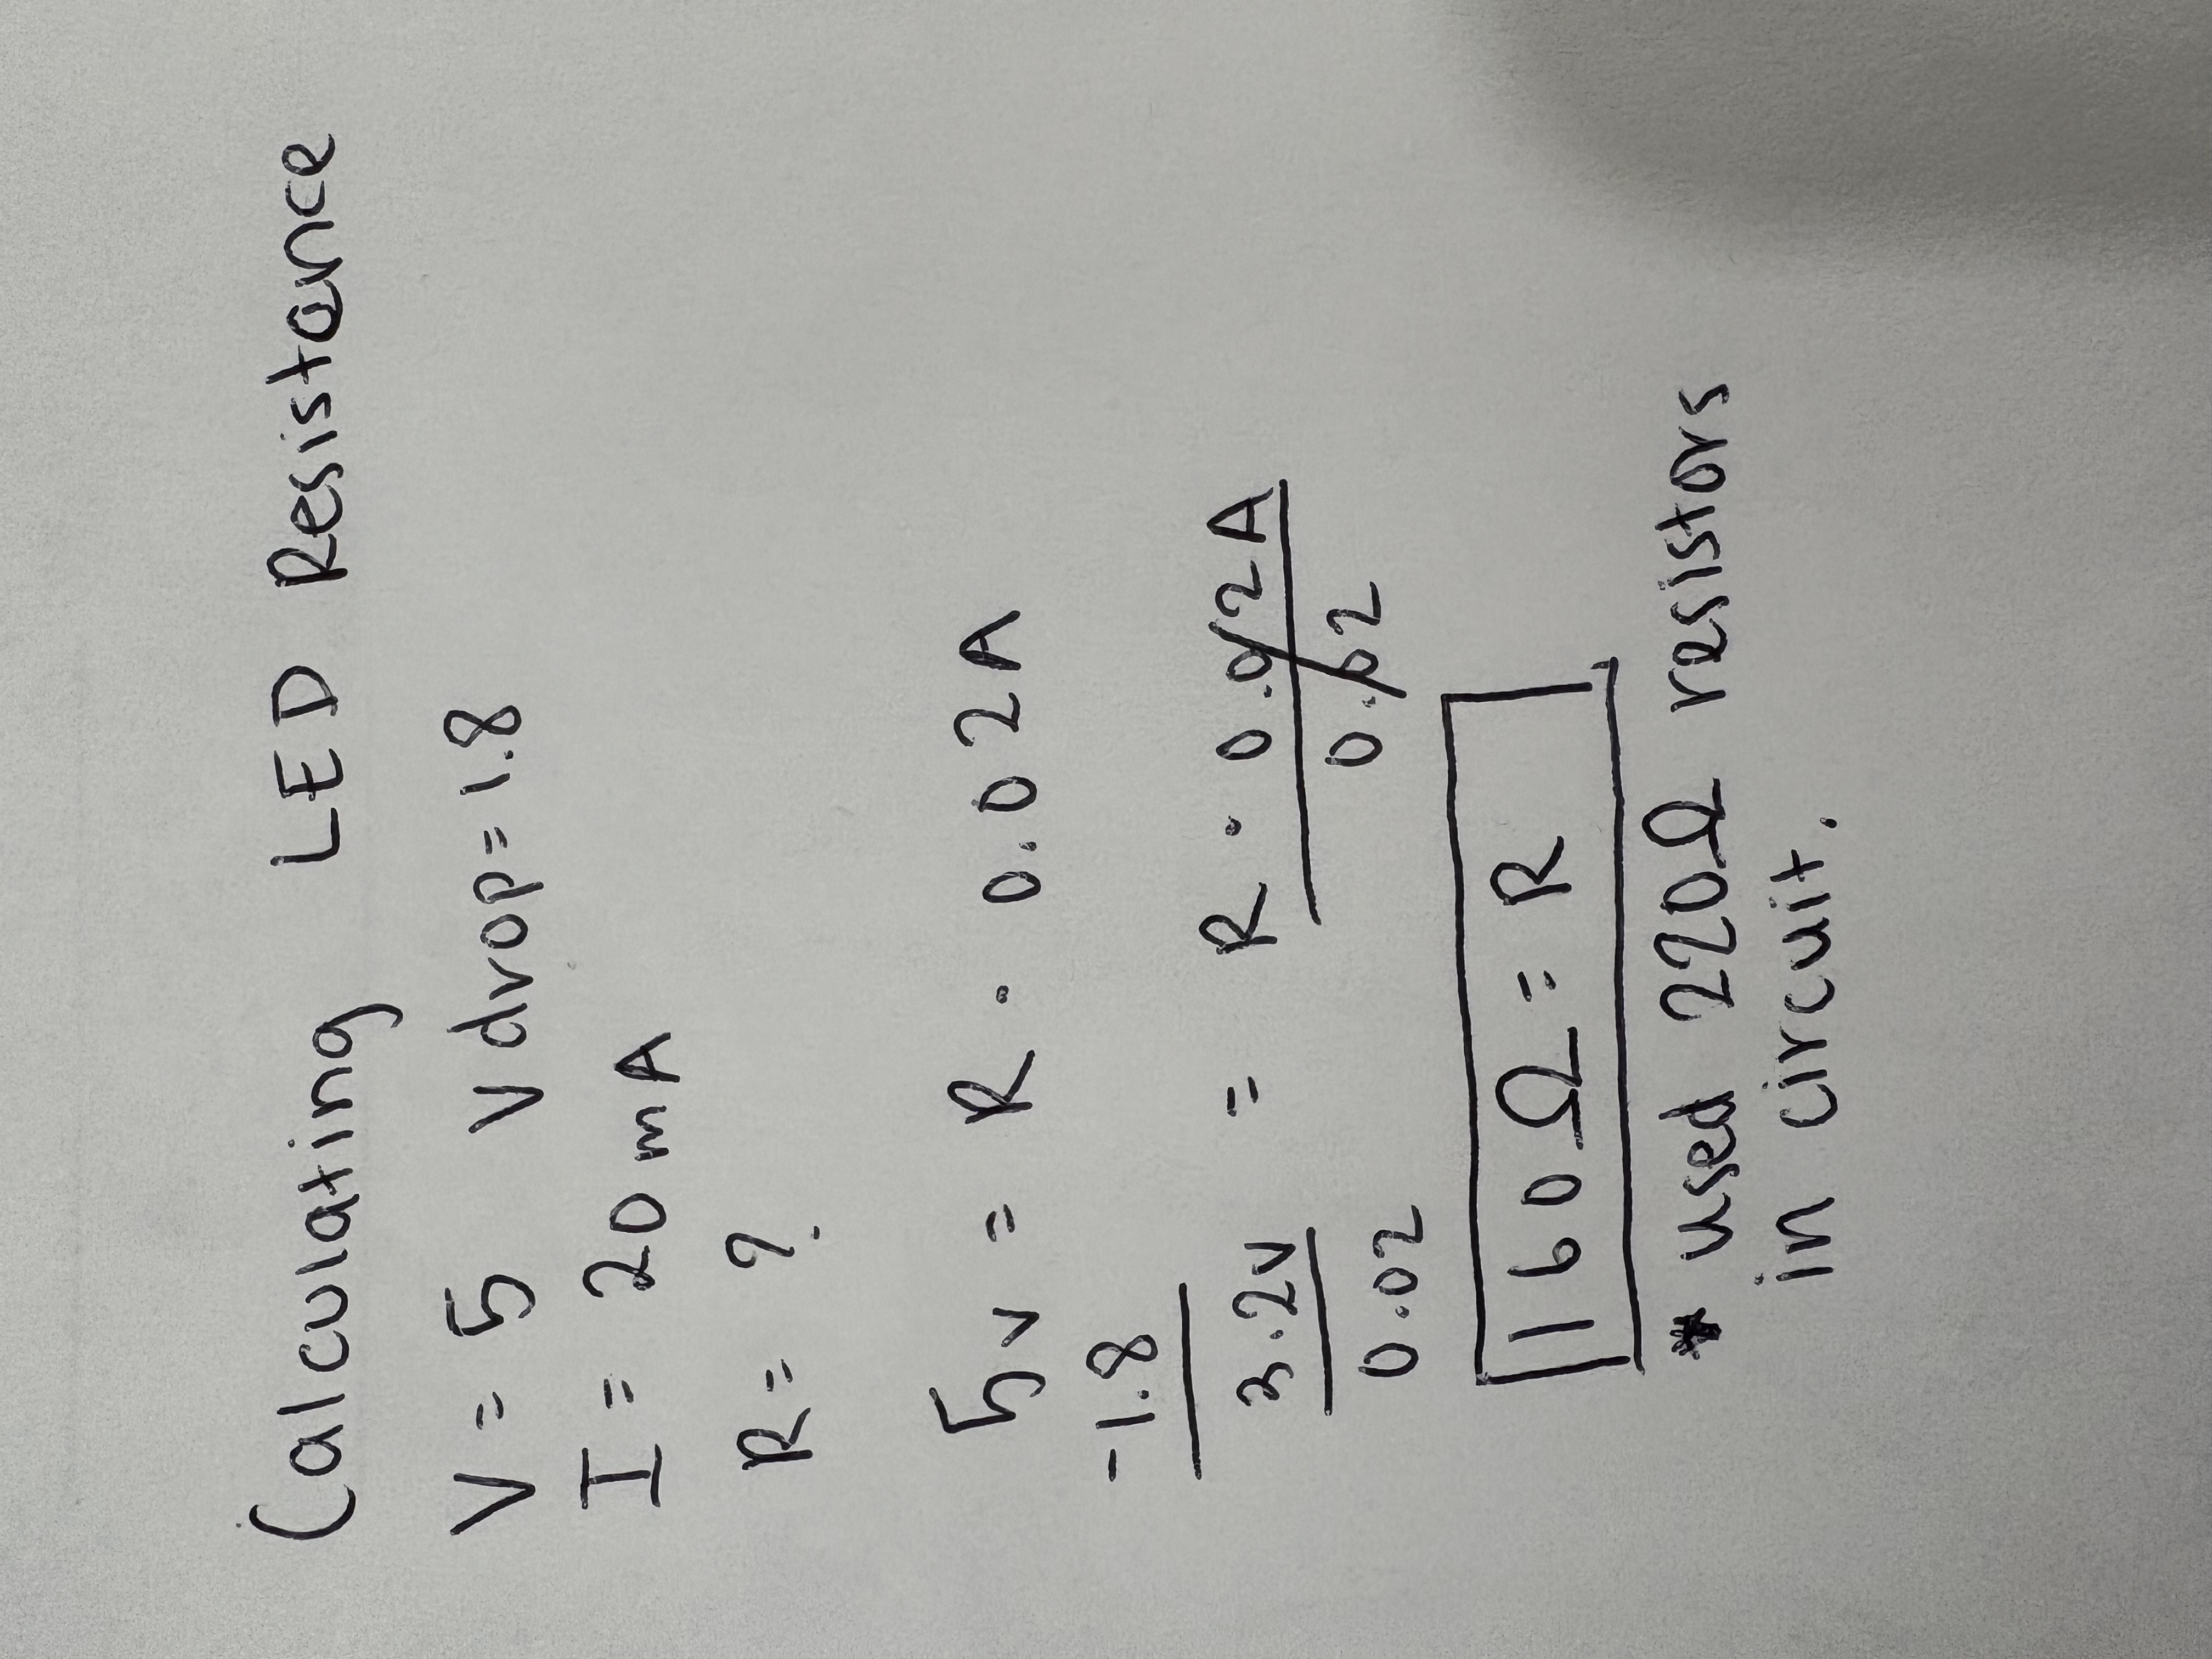 Calculating LED Resistance
V = 5 V drop = 1.8
I = 20 mA
R = ?
5v = R · 0.02A
-1.8
3.2v = R · 0.02A
0.02 0.02
160Ω = R
* used 220Ω resistors
in circuit.